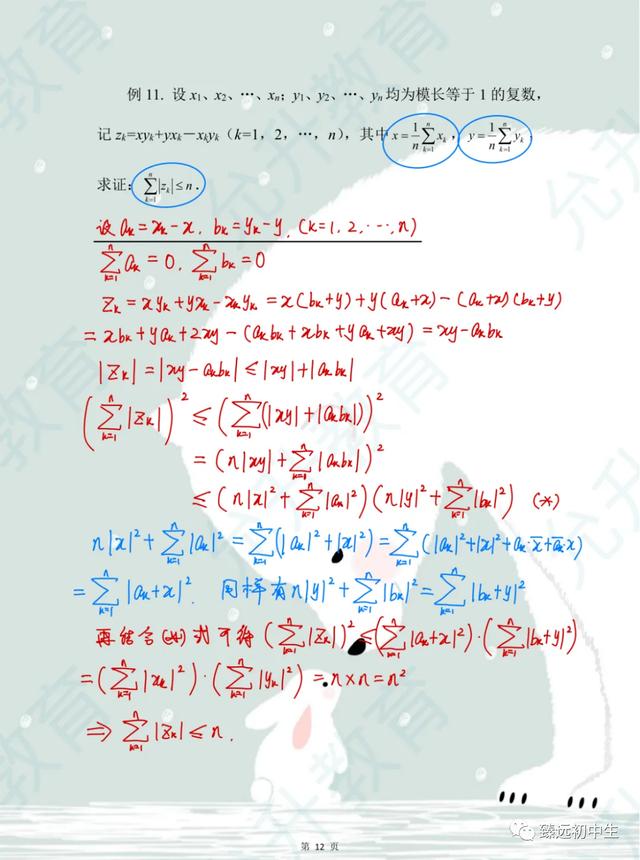 例 11. 设 x₁、x₂、…、xₙ；y₁、y₂、…、yₙ 均为模长等于 1 的复数，
记 zₖ=xyₖ+yxₖ－xₖyₖ（k=1，2，…，n），其中 x = 1/n ∑ₖ₌₁ⁿ xₖ，y = 1/n ∑ₖ₌₁ⁿ yₖ.
求证：∑ₖ₌₁ⁿ |zₖ| ≤ n .
设 aₖ = xₖ - x, bₖ = yₖ - y, (k=1, 2, …, n)
∑ₖ₌₁ⁿ aₖ = 0, ∑ₖ₌₁ⁿ bₖ = 0
zₖ = xyₖ + yxₖ - xₖyₖ = x(bₖ+y) + y(aₖ+x) - (aₖ+x)(bₖ+y)
= xbₖ + yaₖ + 2xy - (aₖbₖ + xbₖ + yaₖ + xy) = xy - aₖbₖ
|zₖ| = |xy - aₖbₖ| ≤ |xy| + |aₖbₖ|
(∑ₖ₌₁ⁿ |zₖ|)² ≤ (∑ₖ₌₁ⁿ (|xy| + |aₖbₖ|))²
= (n|xy| + ∑ₖ₌₁ⁿ |aₖbₖ|)²
≤ (n|x|² + ∑ₖ₌₁ⁿ |aₖ|²)(n|y|² + ∑ₖ₌₁ⁿ |bₖ|²) (*)
n|x|² + ∑ₖ₌₁ⁿ |aₖ|² = ∑ₖ₌₁ⁿ (|aₖ|² + |x|²) = ∑ₖ₌₁ⁿ (|aₖ|² + |x|² + aₖ·x̄ + āₖ·x)
= ∑ₖ₌₁ⁿ |aₖ + x|². 同样有 n|y|² + ∑ₖ₌₁ⁿ |bₖ|² = ∑ₖ₌₁ⁿ |bₖ + y|²
再结合 (*) 式可得 (∑ₖ₌₁ⁿ |zₖ|)² ≤ (∑ₖ₌₁ⁿ |aₖ+x|²)·(∑ₖ₌₁ⁿ |bₖ+y|²)
= (∑ₖ₌₁ⁿ |xₖ|²)·(∑ₖ₌₁ⁿ |yₖ|²) = n × n = n²
⇒ ∑ₖ₌₁ⁿ |zₖ| ≤ n .
第 12 页
臻远初中生
允升教育